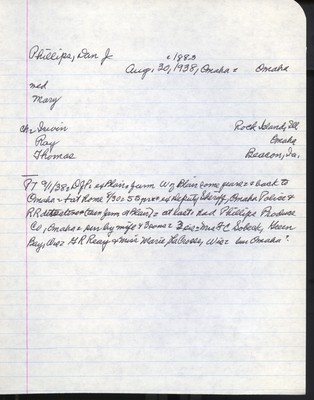 Phillips, Dan J c1883
Aug. 30, 1938, Omaha = Omaha
md
Mary
ch: Irwin Rock Island, Ill
Ray Omaha
Thomas Beacon, Ia.
97 9/1/38: DJP. ex Blair farm W of Blair some years = back to
Omaha = at home 930 = 55 yrs = ex deputy sheriff, Omaha Police &
RR = at last had Phillips Produce
Co, Omaha = sur by wife & 3 sons = 3 sis = Mrs F C Sobcek, Green
Bay, Wis = G R Reay & Miss Marie LaCrosse, Wis = bur Omaha.